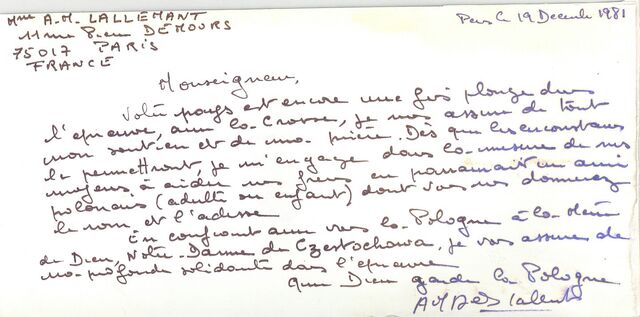 Mme A.M. LALLEMANT
11 rue Pierre DEMOURS
75017 PARIS
FRANCE
Paris le 19 Decembre 1981
Monseigneur,
Votre pays est encore une fois plongé dans
l'épreuve, avec la Croix, je vous assure de tout
mon soutien et de ma prière. Dès que les circonstances
le permettront, je m'engage dans la mesure de mes
moyens à aider vos frères en parrainant un ami
polonais (adulte ou enfant) dont vous me donnerez
le nom et l'adresse
En confiant avec vous la Pologne à la Mère
de Dieu, Notre Dame de Czestochowa, je vous assure de
ma profonde solidarité dans l'épreuve
Que Dieu garde la Pologne